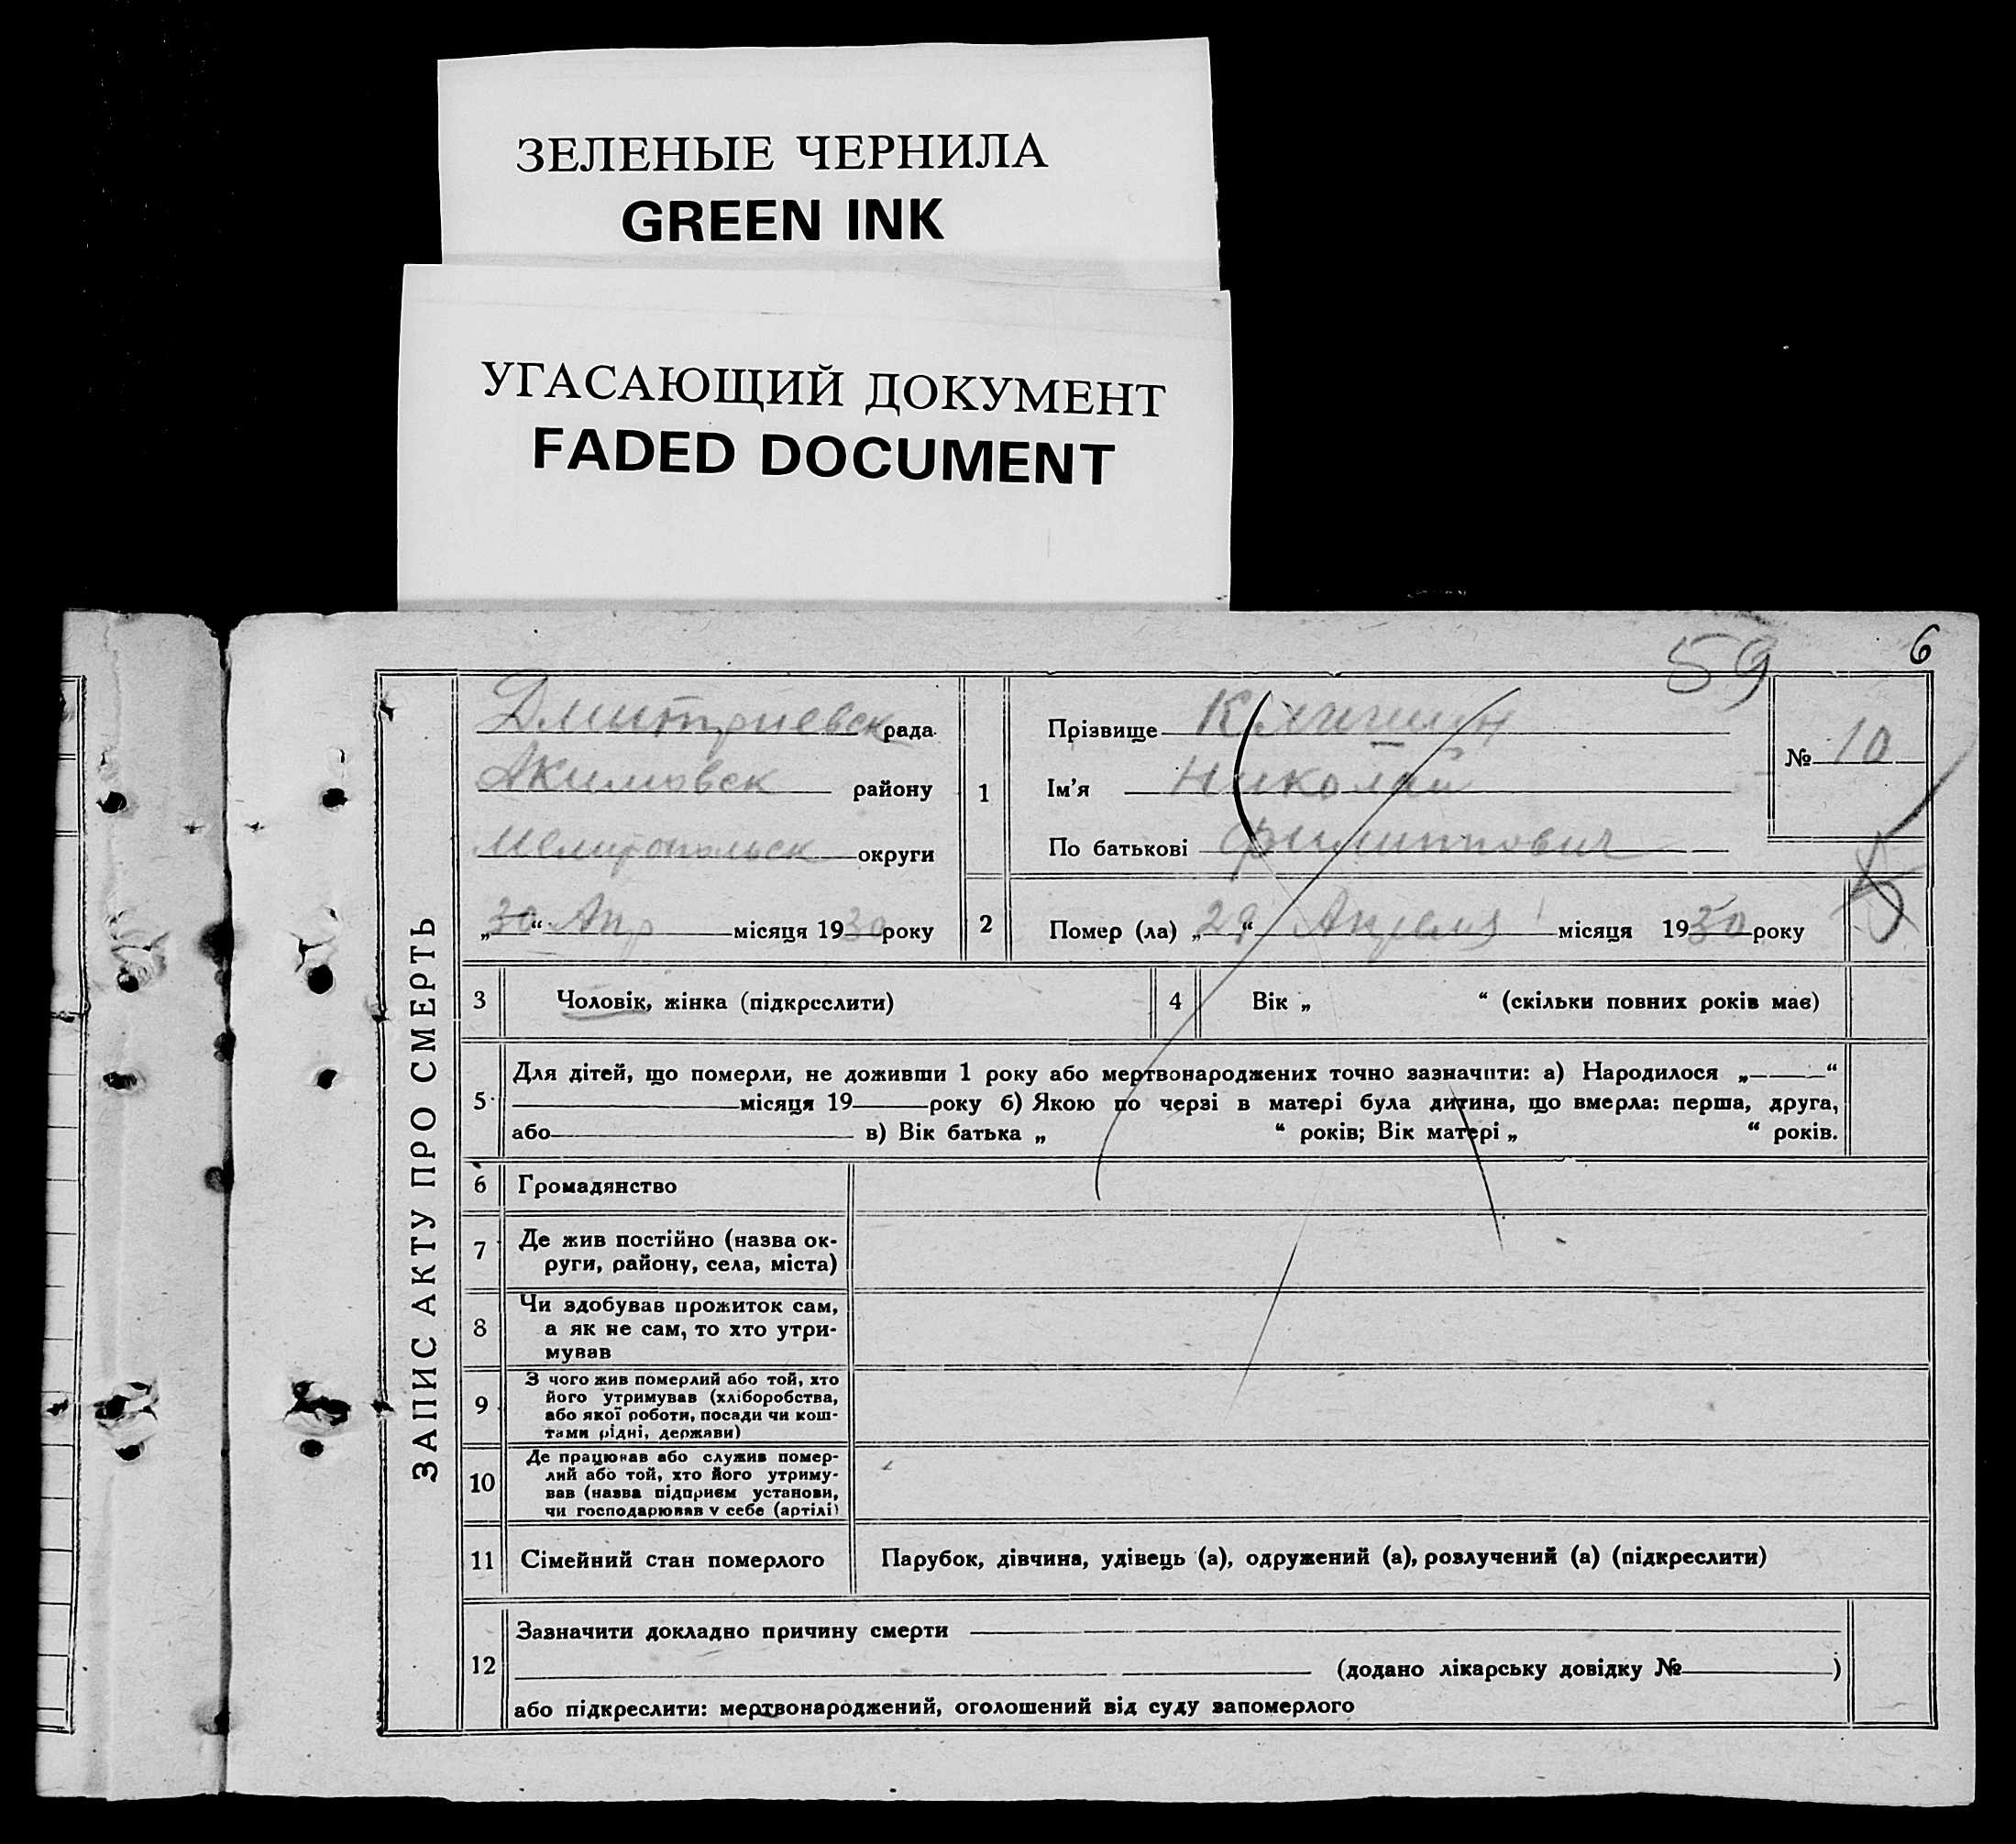 ЗЕЛЕНЫЕ ЧЕРНИЛА
GREEN INK
УГАСАЮЩИЙ ДОКУМЕНТ
FADED DOCUMENT
59
6
ЗАПИС АКТУ ПРО СМЕРТЬ
Дмитриевск рада
Акимовск району
Мелитопольск округи
„30“ Апр місяця 1930 року
1
Прізвище
Ім'я Николай
По батькові Филиппович
№ 10
2
Помер (ла) „29“ Апреля місяця 1930 року
3 Чоловік, жінка (підкреслити)
4 Вік „ “ (скільки повних років має)
5
Для дітей, що померли, не доживши 1 року або мертвонароджених точно зазначити: а) Народилося „ “
місяця 19 року б) Якою по черзі в матері була дитина, що вмерла: перша, друга,
або в) Вік батька „ “ років; Вік матері „ “ років.
6 Громадянство
7 Де жив постійно (назва ок-
руги, району, села, міста)
8 Чи здобував прожиток сам,
а як не сам, то хто утри-
мував
9 З чого жив померлий або той, хто
його утримував (хліборобства,
або якої роботи, посади чи кош-
тами рідні, держави)
10 Де працював або служив помер-
лий або той, хто його утриму-
вав (назва підприєм установи,
чи господарював у себе (артілі)
11 Сімейний стан померлого
Парубок, дівчина, удівець (а), одружений (а), розлучений (а) (підкреслити)
12
Зазначити докладно причину смерти
(додано лікарську довідку № )
або підкреслити: мертвонароджений, оголошений від суду запомерлого